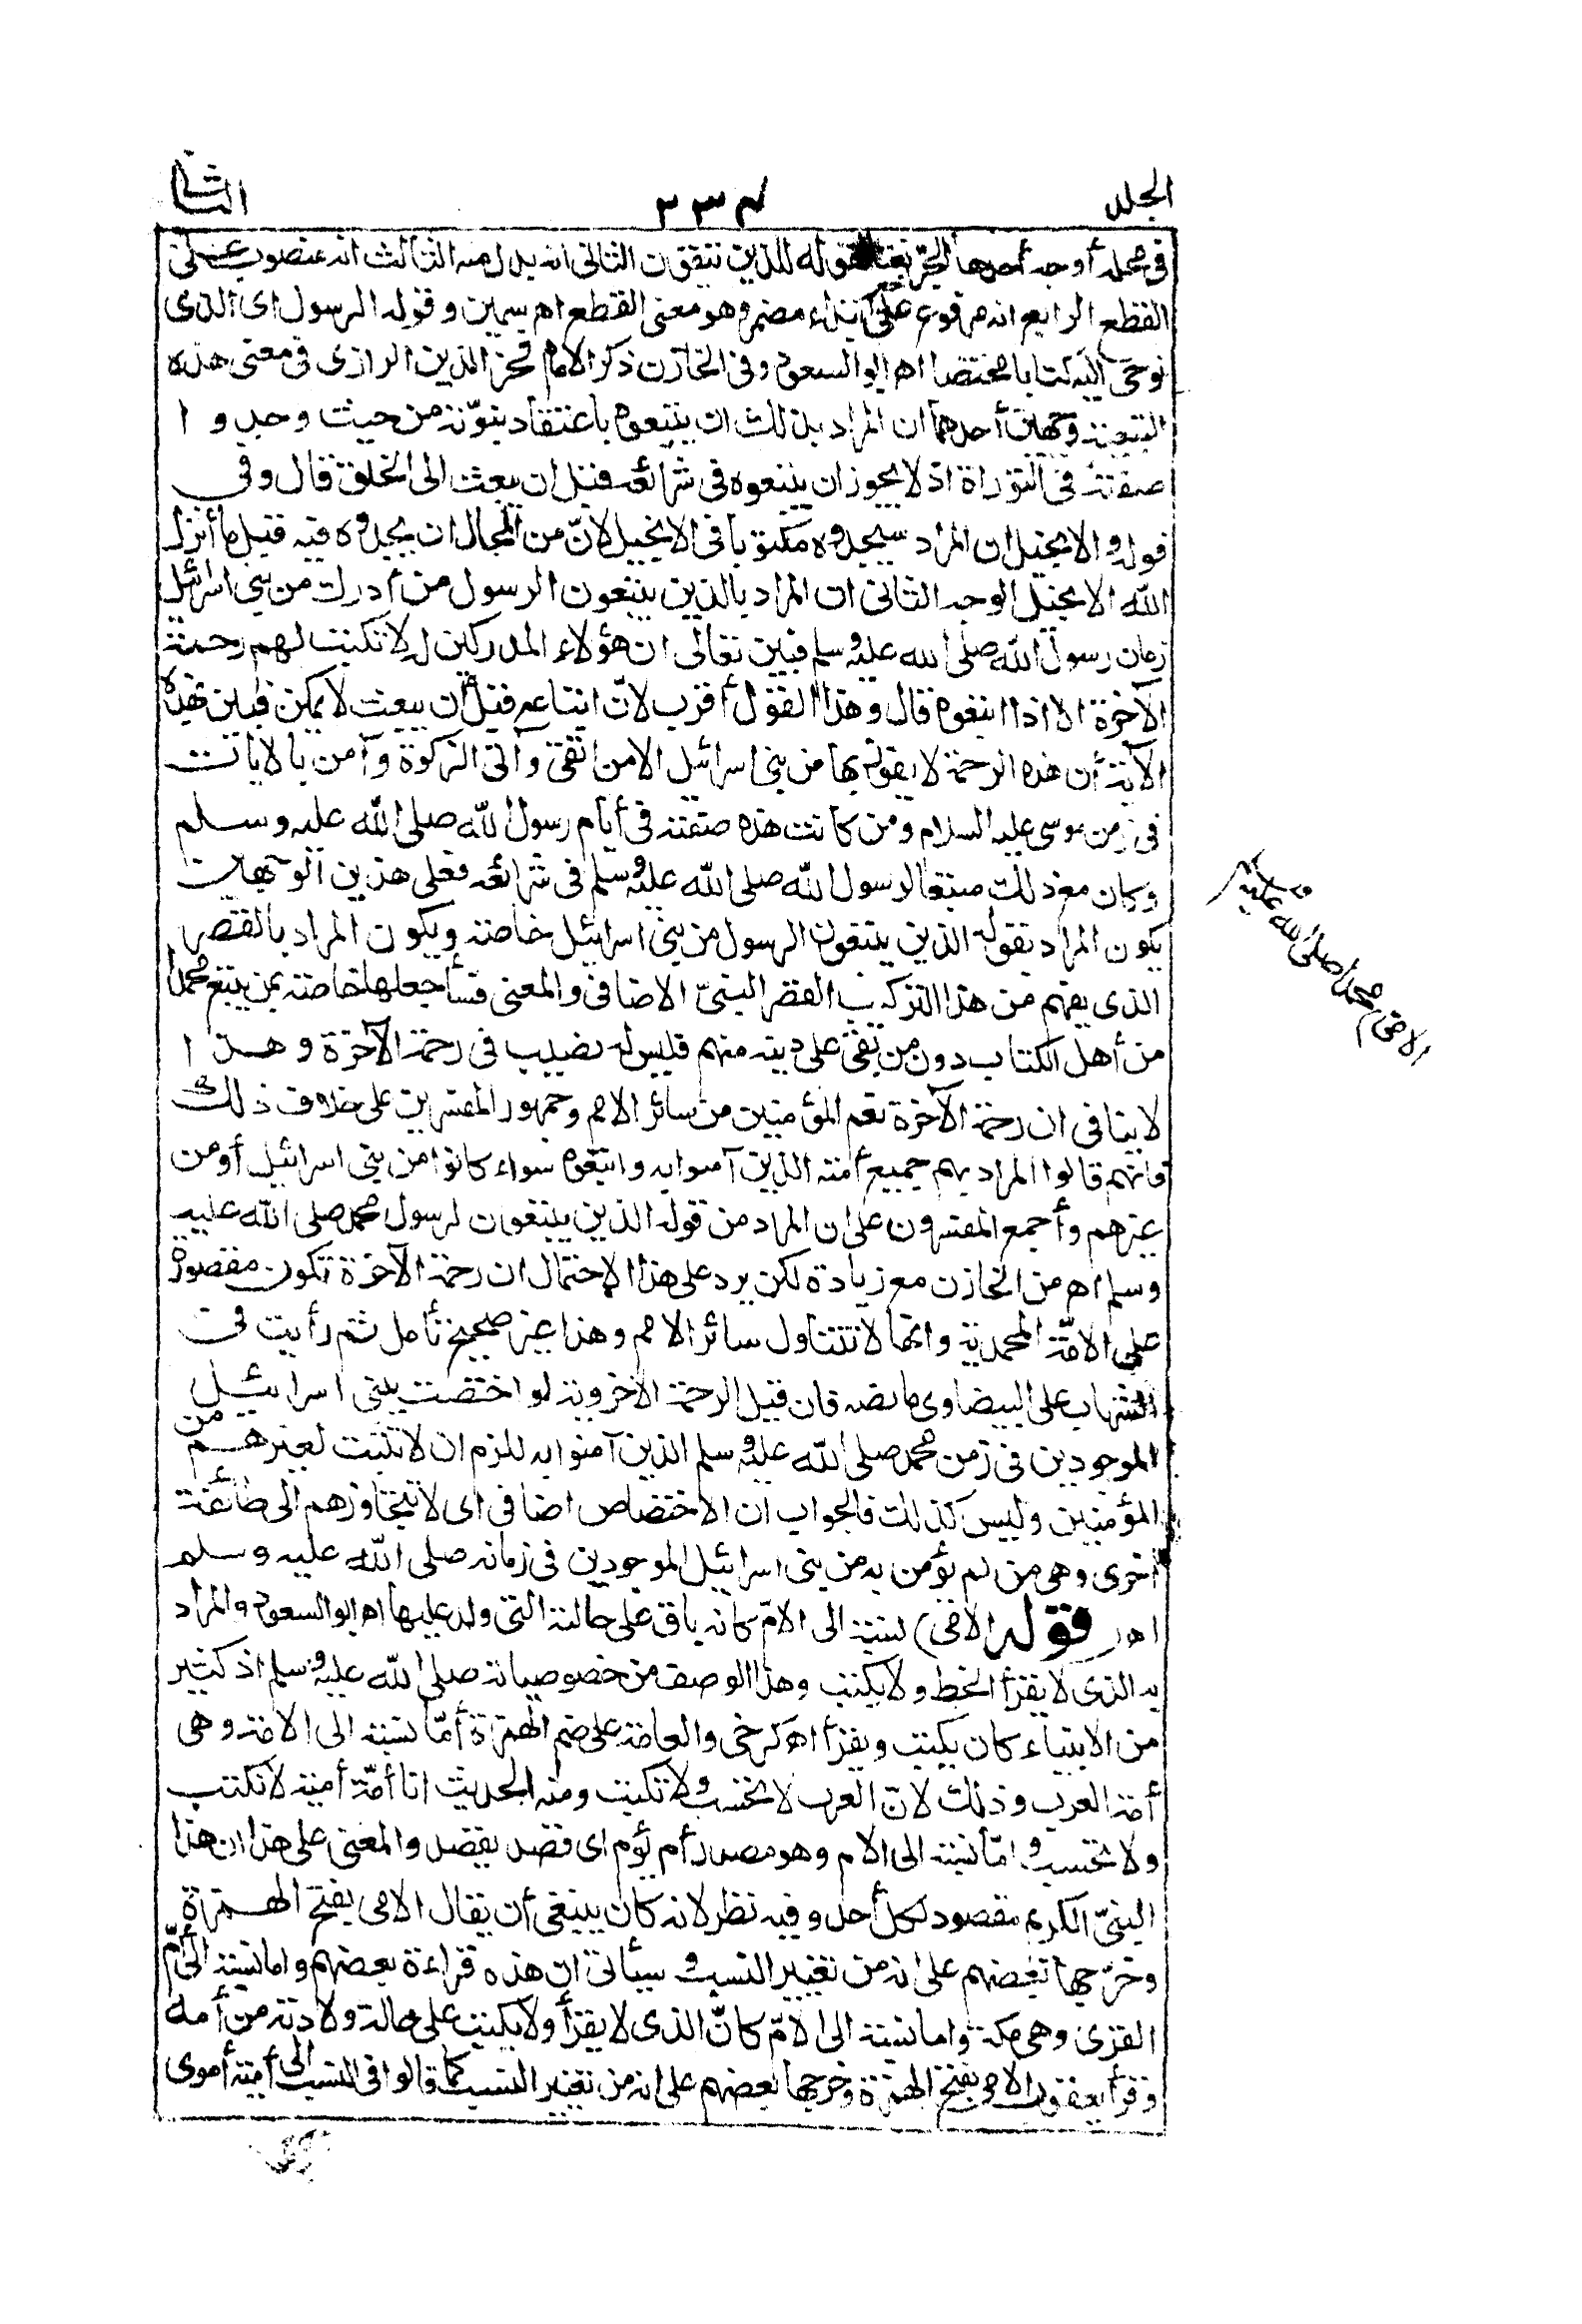 الجلد ٢٣٤ الثانى
فى محله أوجه أحدها الجر نعتا لقوله للذين يتقون الثانى انه بدل منه الثالث انه منصوب على
القطع الرابع انه مرفوع على خبر ابتداء مضمر وهو معنى القطع اهـ سمين وقوله الرسول اى الذى
نوحى اليه كتابا مختصا اهـ ابو السعود وفى الخازن ذكر الامام فخر الدين الرازى فى معنى هذه
التبعية وجهين أحدهما ان المراد بذلك ان يتبعوه باعتقاد نبوّته من حيث وجدوا
صفته فى التوراة اذ لا يجوز ان يتبعوه فى شرائعه قبل ان يبعث الى الخلق قال وفى
قوله والانجيل ان المراد سيجدوه مكتوبا فى الانجيل لانّ من المحال ان يجدوه فيه قبل ما أنزل
الله الانجيل الوجه الثانى ان المراد بالذين يتبعون الرسول من أدرك من بنى اسرائيل
زمان رسول الله صلى الله عليه وسلم فبين تعالى ان هؤلاء المدركين له لا تكتب لهم رحمة
الآخرة الا اذا اتبعوه قال وهذا القول أقرب لانّ اتباعه قبل أن يبعث لا يمكن فبين بهذه
الآية أن هذه الرحمة لا يفوز بها من بنى اسرائيل الا من اتقى وآتى الزكوة وآمن بالايات
فى زمن موسى عليه السلام ومن كانت هذه صفته فى أيام رسول الله صلى الله عليه وسلم
وكان مع ذلك متبعا لرسول الله صلى الله عليه وسلم فى شرائعه فعلى هذين الوجهين
يكون المراد بقوله الذين يتبعون الرسول من بنى اسرائيل خاصة ويكون المراد بالقصر
الذى يفهم من هذا التركيب القصر النسبىّ الاضافى والمعنى فسأجعلها خاصة بمن يتبع محمدا
من أهل الكتاب دون من بقى على دينه منهم فليس له نصيب فى رحمة الآخرة وهذا
لا ينافى ان رحمة الآخرة تعم المؤمنين من سائر الامم وجمهور المفسرين على خلاف ذلك
فانهم قالوا المراد بهم جميع أمته الذين آمنوا به واتبعوه سواء كانوا من بنى اسرائيل أو من
غيرهم وأجمع المفسرون على ان المراد من قوله الذين يتبعون الرسول محمد صلى الله عليه
وسلم اهـ من الخازن مع زيادة لكن يرد على هذا الاحتمال ان رحمة الآخرة تكون مقصورة
على الامّة المحمدية وانها لا تتناول سائر الامم وهذا غير صحيح تأمل ثم رأيت فى
الشهاب على البيضاوى ما نصه فان قيل الرحمة الاخروية لو اختصت ببنى اسرائيل
الموجودين فى زمن محمد صلى الله عليه وسلم الذين آمنوا به للزم ان لا تثبت لغيرهم من
المؤمنين وليس كذلك فالجواب ان الاختصاص اضافى اى لا تتجاوزهم الى طائفة
أخرى وهى من لم يؤمن به من بنى اسرائيل الموجودين فى زمانه صلى الله عليه وسلم
اهـ (قوله الامى) نسبة الى الامّ كانه باق على حالته التى ولد عليها اهـ ابو السعود والمراد
به الذى لا يقرأ الخط ولا يكتب وهذا الوصف من خصوصياته صلى الله عليه وسلم اذ كثير
من الانبياء كان يكتب ويقرأ اهـ كرخى والعامة على ضم الهمزة أمّا نسبة الى الامة وهى
أمة العرب وذلك لانّ العرب لا تحسب ولا تكتب ومنه الحديث انا أمّة أمية لا نكتب
ولا نحسب و امّا نسبة الى الام وهو مصدر أم يؤم اى قصد يقصد والمعنى على هذا ان هذا
النبىّ الكريم مقصود لكل أحد وفيه نظر لانه كان ينبغى أن يقال الامى بفتح الهمزة
وخرّجها بعضهم على انه من تغيير النسب و سيأتى ان هذه قراءة بعضهم واما نسبة الى أمّ
القرى وهى مكة واما نسبة الى الامّ كانّ الذى لا يقرأ ولا يكتب على حالة ولادته من أمه
وقرأ يعقوب الامى بفتح الهمزة وخرجها بعضهم على انه من تغيير النسب كما قالوا فى النسب الى أمية أموى
الامى محمدا صلى الله عليه وسلم